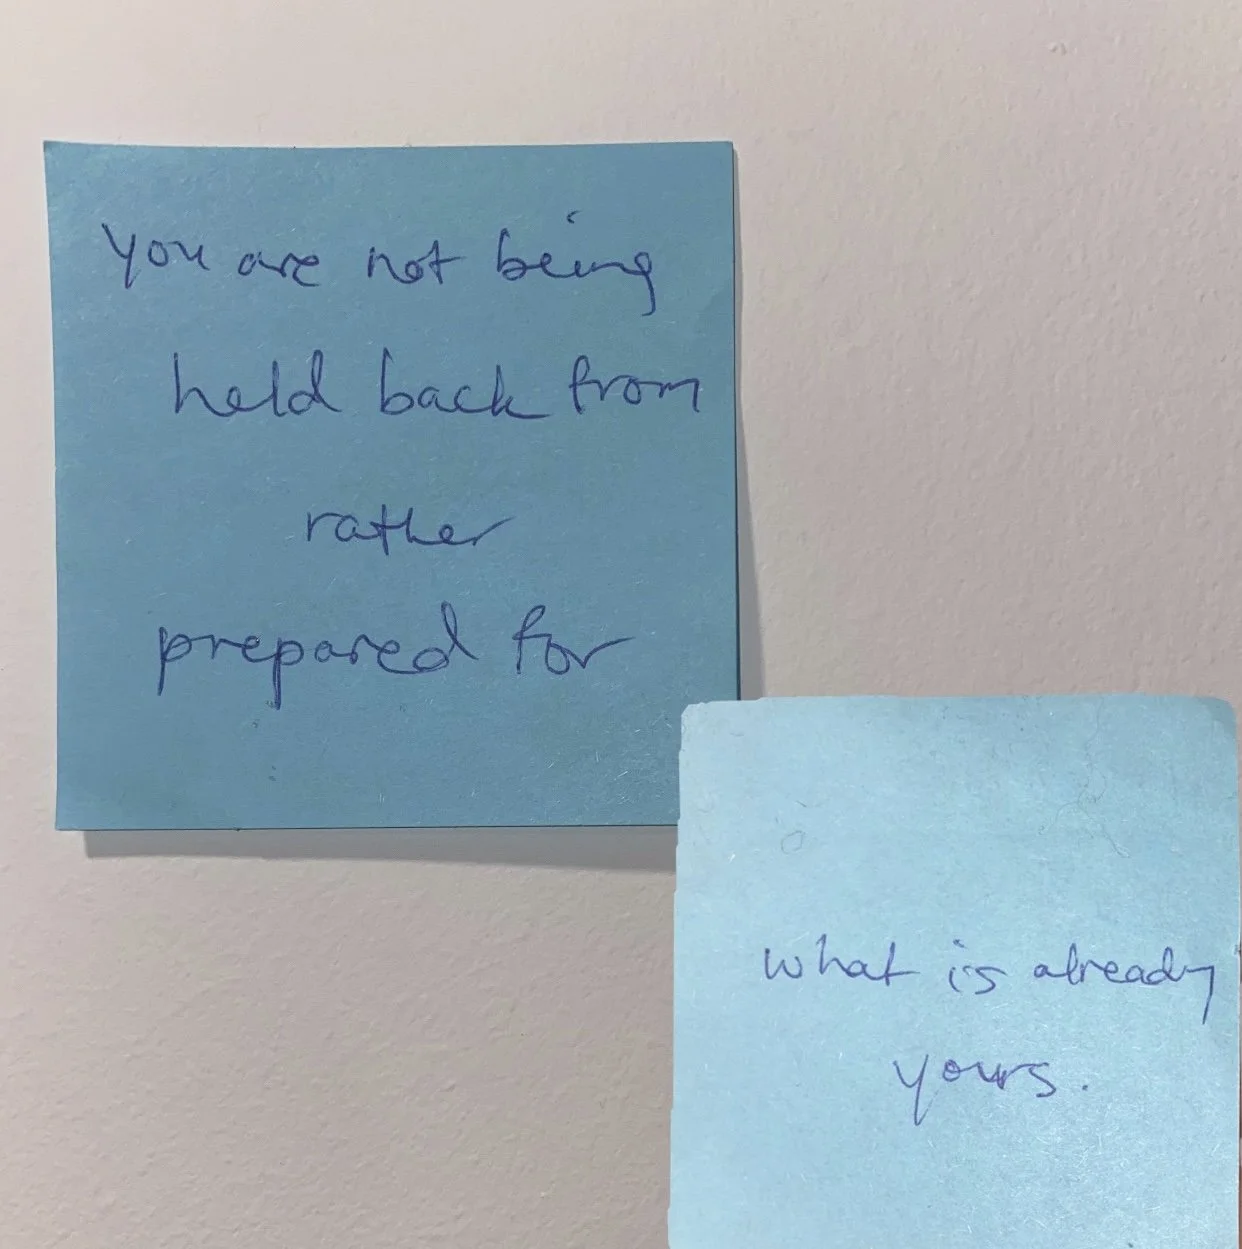 you are not being
held back from
rather
prepared for
what is already
yours.